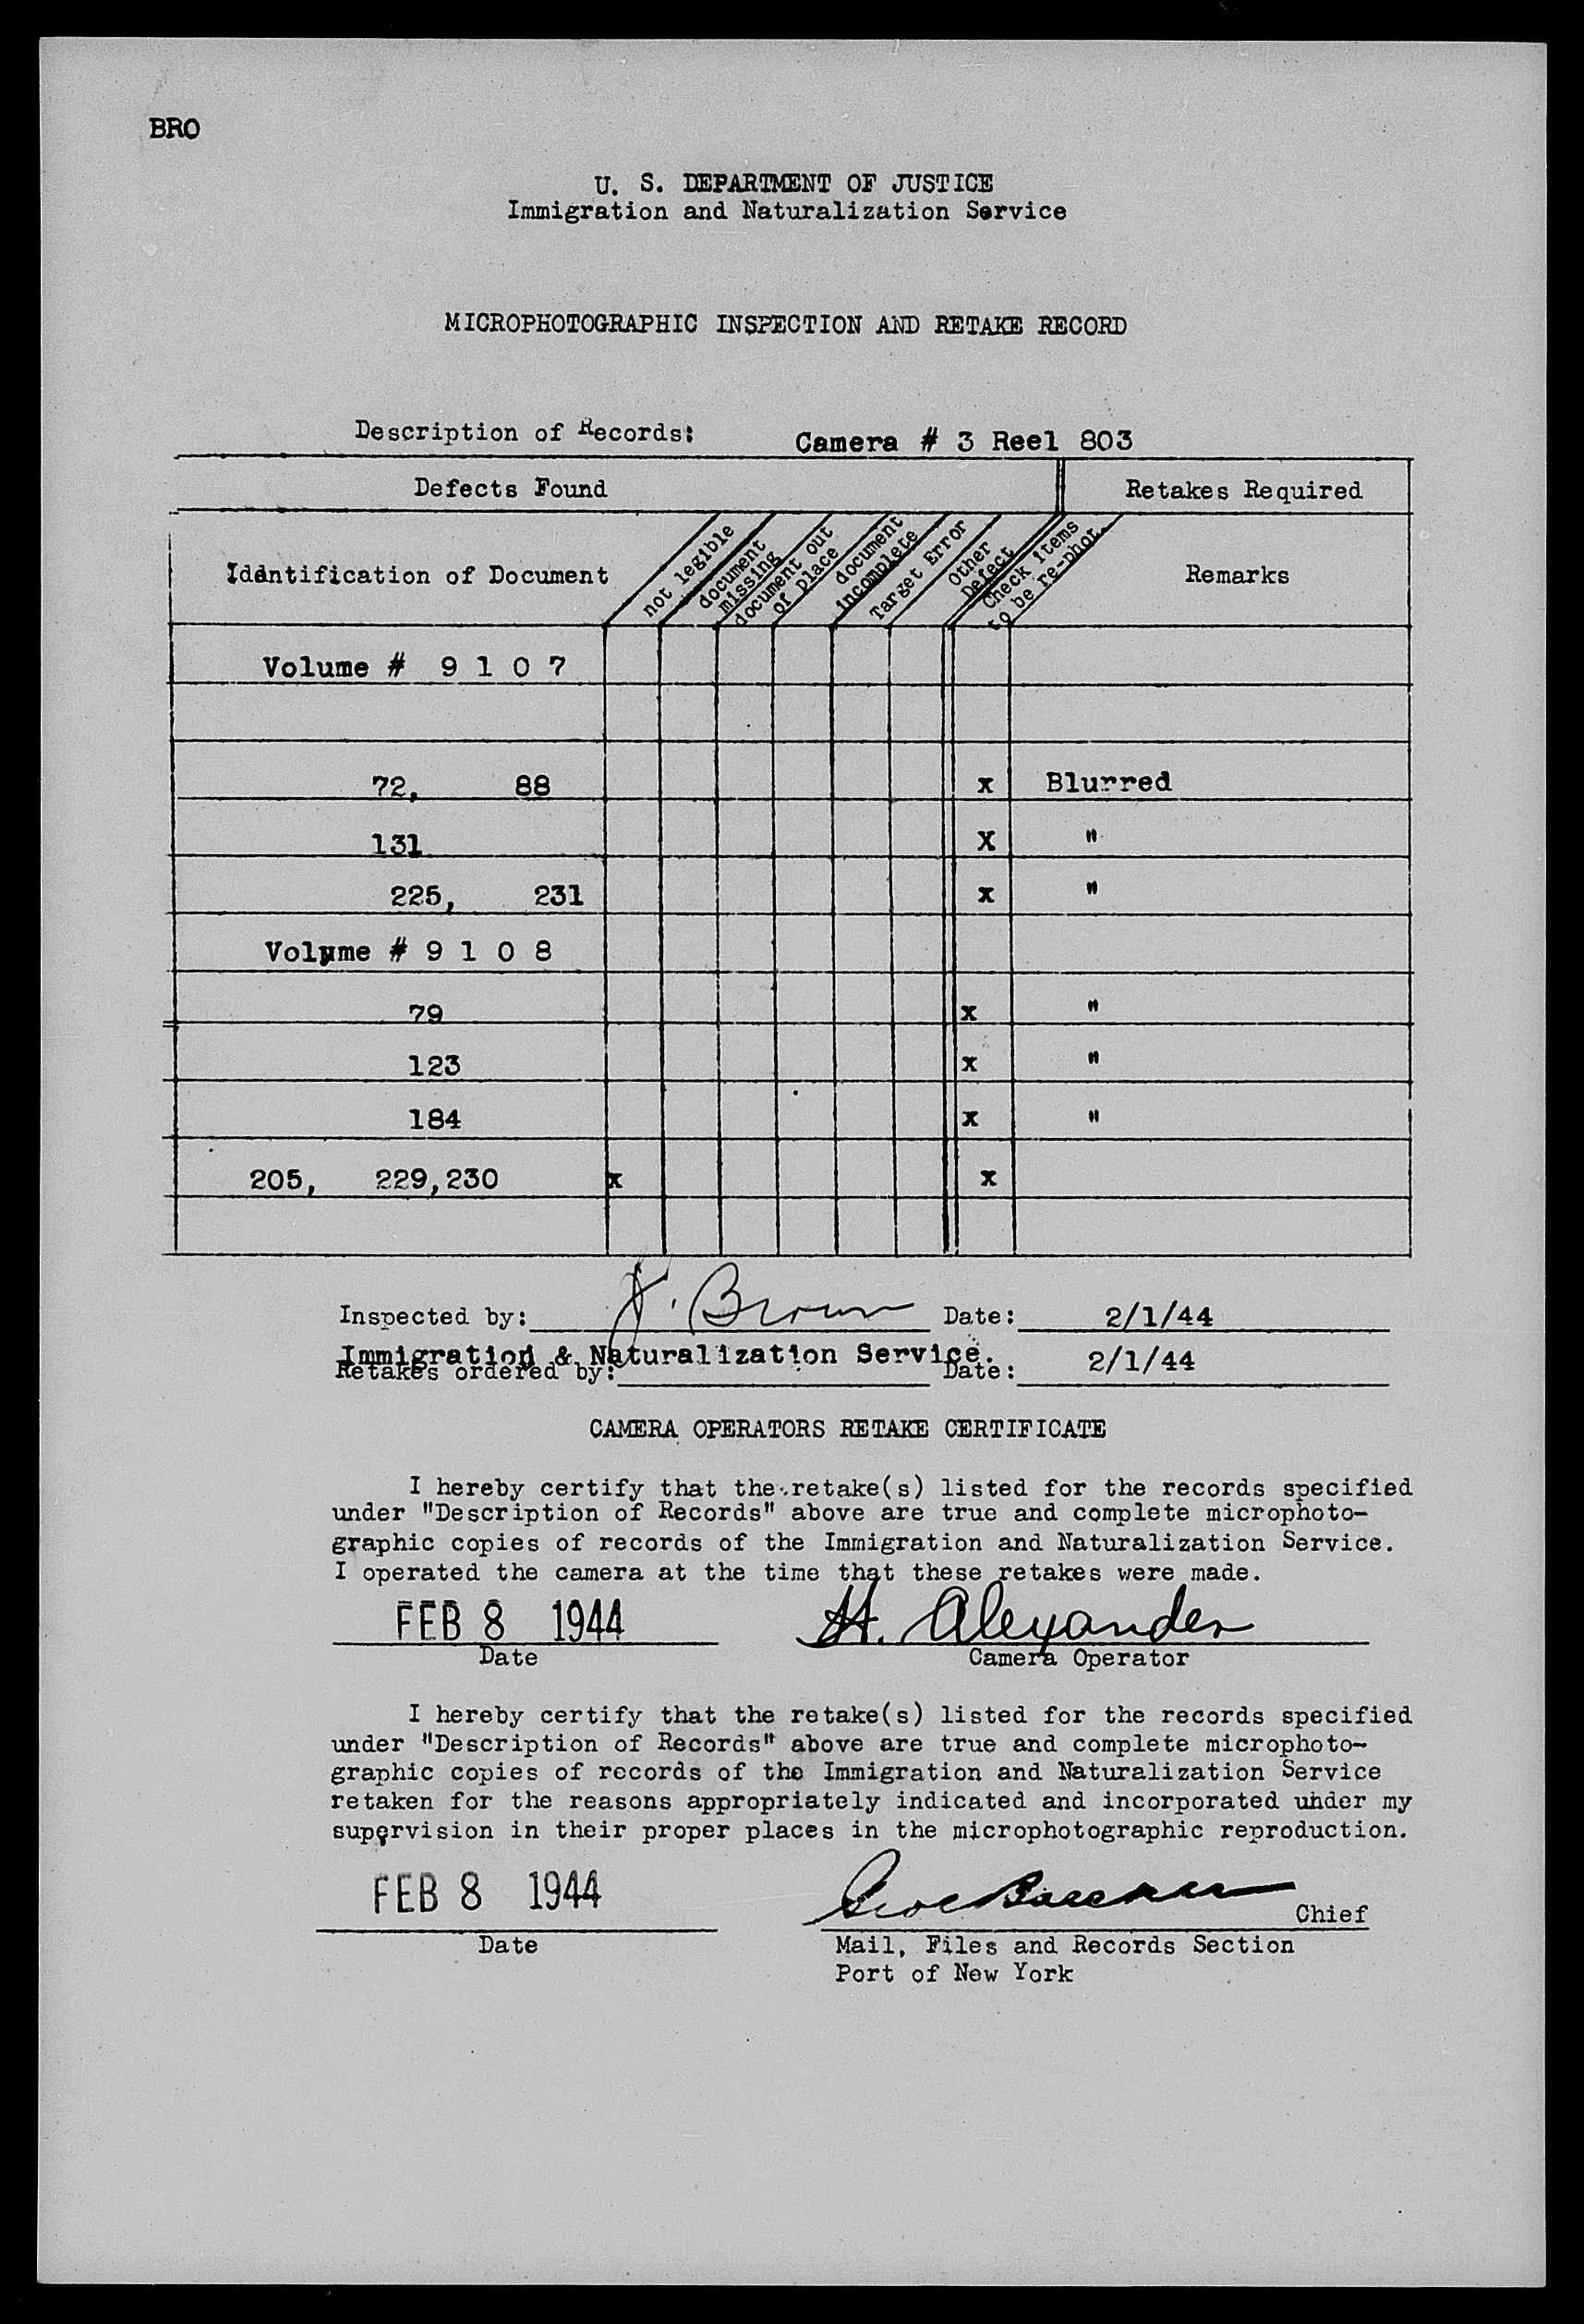 BRO
U. S. DEPARTMENT OF JUSTICE
Immigration and Naturalization Service
MICROPHOTOGRAPHIC INSPECTION AND RETAKE RECORD
Description of Records: Camera # 3 Reel 803
Defects Found Retakes Required
Iddntification of Document not legible document missing document out of place document incomplete Target Error Other Defect Check items to be re-phot. Remarks
Volume # 9 1 0 7
72, 88 x Blurred
131 X "
225, 231 x "
Volume # 9 1 0 8
79 x "
123 x "
184 x "
205, 229,230 x x
Inspected by: J. Brown Date: 2/1/44
Immigration & Naturalization Service.
Retakes ordered by: Date: 2/1/44
CAMERA OPERATORS RETAKE CERTIFICATE
I hereby certify that the retake(s) listed for the records specified
under "Description of Records" above are true and complete microphoto-
graphic copies of records of the Immigration and Naturalization Service.
I operated the camera at the time that these retakes were made.
FEB 8 1944 H. Alexander
Date Camera Operator
I hereby certify that the retake(s) listed for the records specified
under "Description of Records" above are true and complete microphoto-
graphic copies of records of the Immigration and Naturalization Service
retaken for the reasons appropriately indicated and incorporated under my
supervision in their proper places in the microphotographic reproduction.
FEB 8 1944 Chief
Date Mail, Files and Records Section
Port of New York